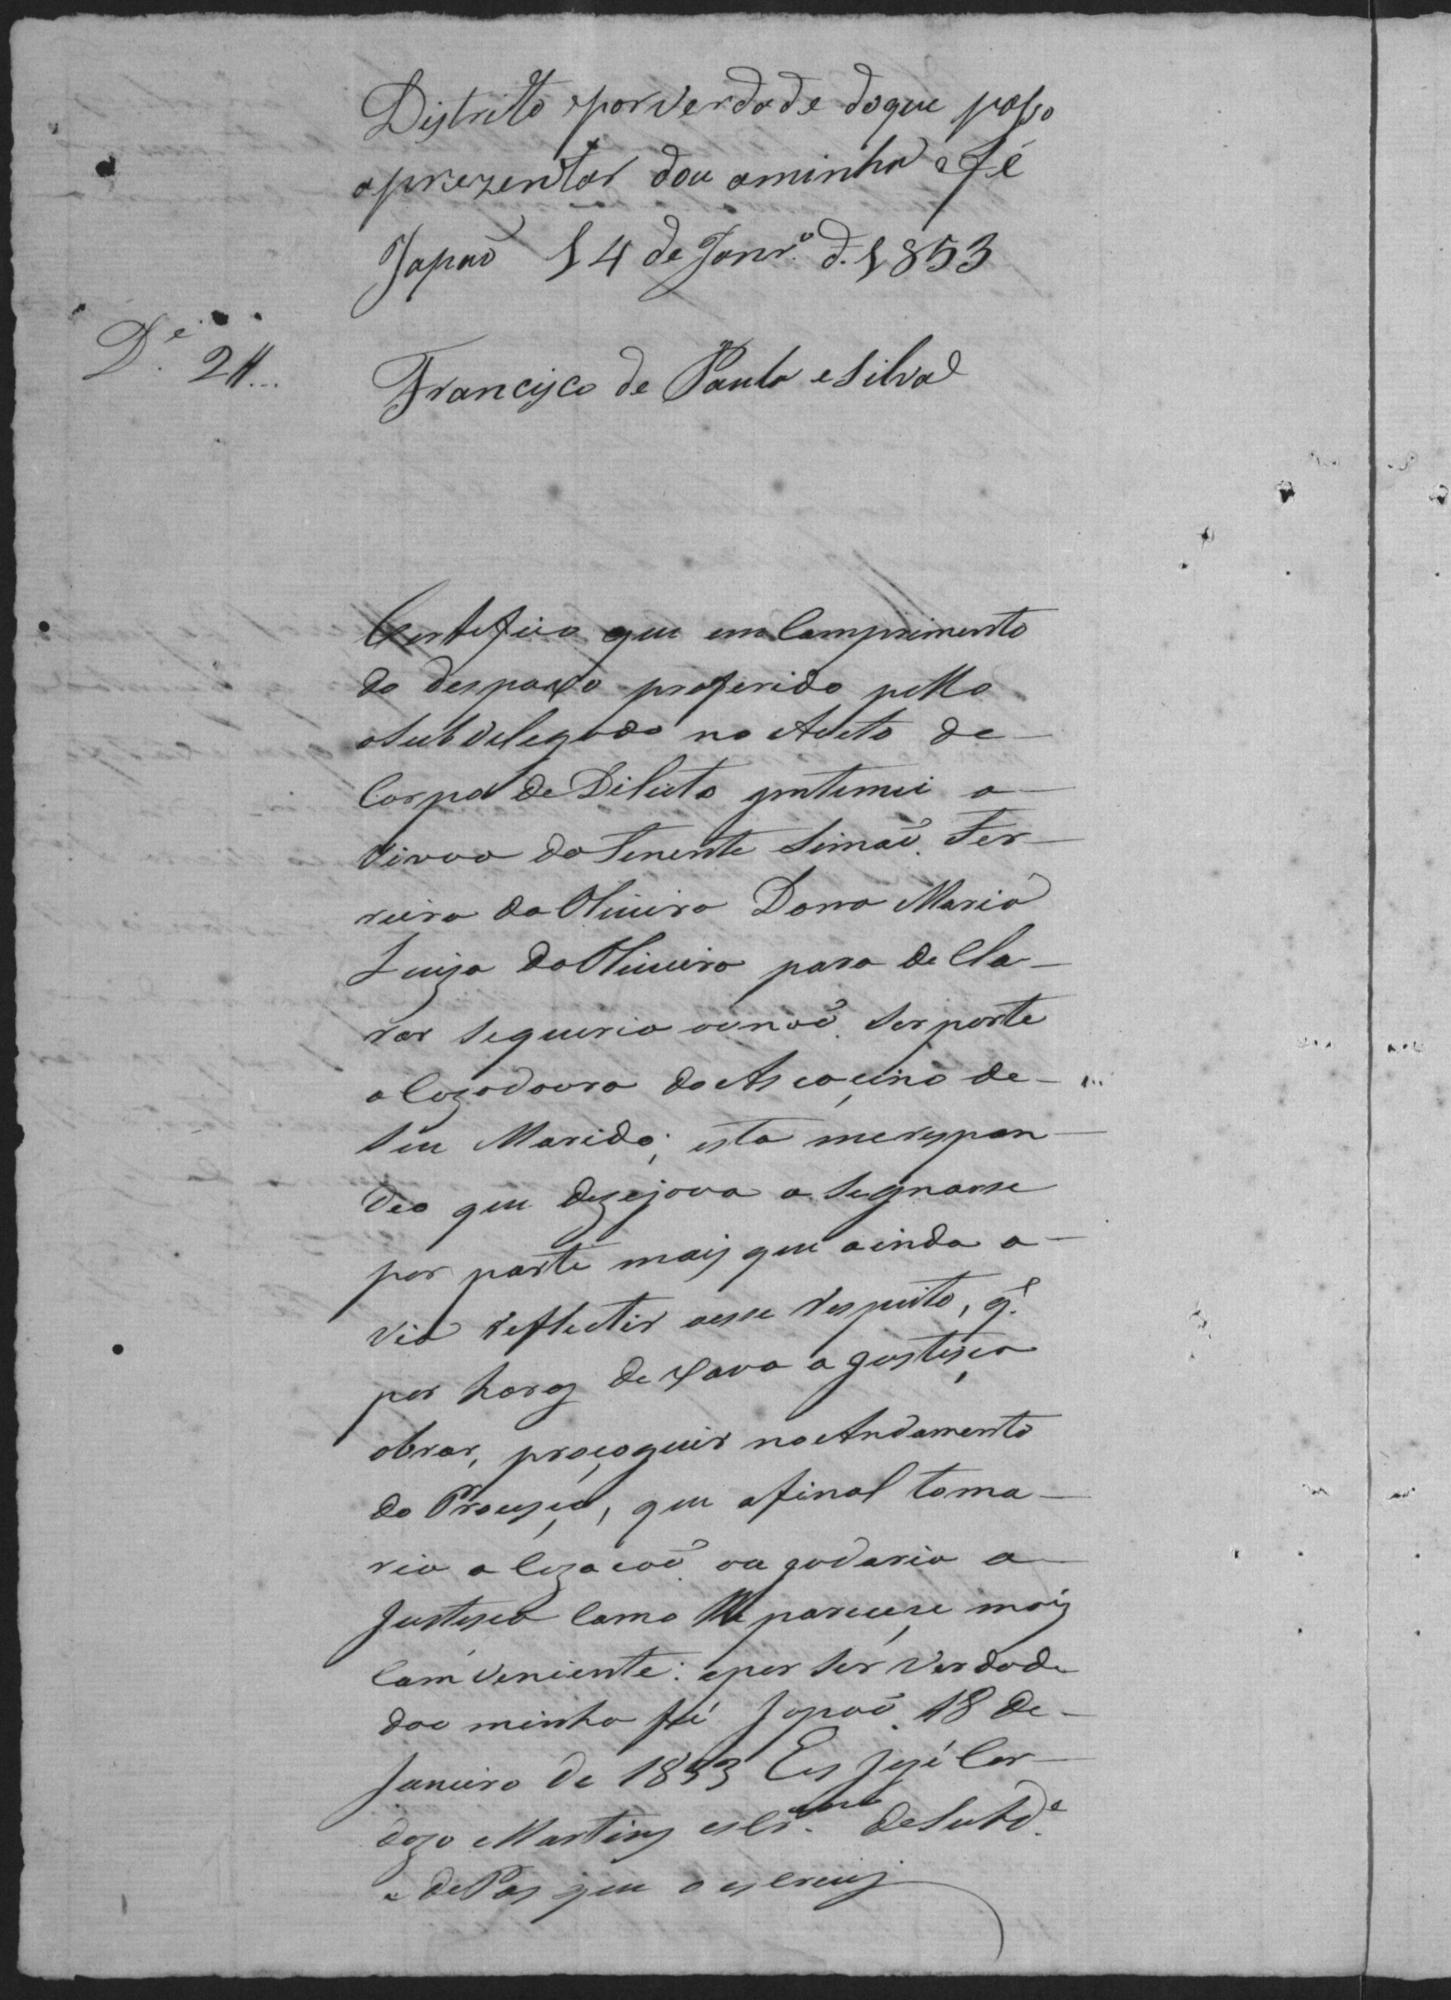 Distrito eporverdade doque paso
aprezentar dou aminha Fé
Japaõ 14 de Janr.º d. 1853
D.e 2#...
Francisco de Paula eSilva
Certefico que em Comprimento
do despaxo proferido pello
Subdelegado no Auto de
Corpo de Delicto yntemei a
Viuva do Tenente Simaõ Fer-
reira da Oliveira Dona Maria
Luiza da Oliveira para decla-
rar sequeria ounaõ. ser parte
a Cuzadoura do Asacino de-
seu Marido; esta merespon-
deo que dezejava a Segnarse
por parte mais que ainda a-
via reflectir aesse respeito, q.e
por hora deixava a justisça
obrar, proçoguir no Andamento
do Proceço, que afinal toma-
ria a Cuzacaõ ou judaria a
Justisça Como lhe parecese mais
Comveniente: epor ser Verdade
dou minha fé Japaõ 18 de-
Janeiro de 1853 Eu José Car-
dozo Martins escr.am deSubd.e
e dePas que o escrevy